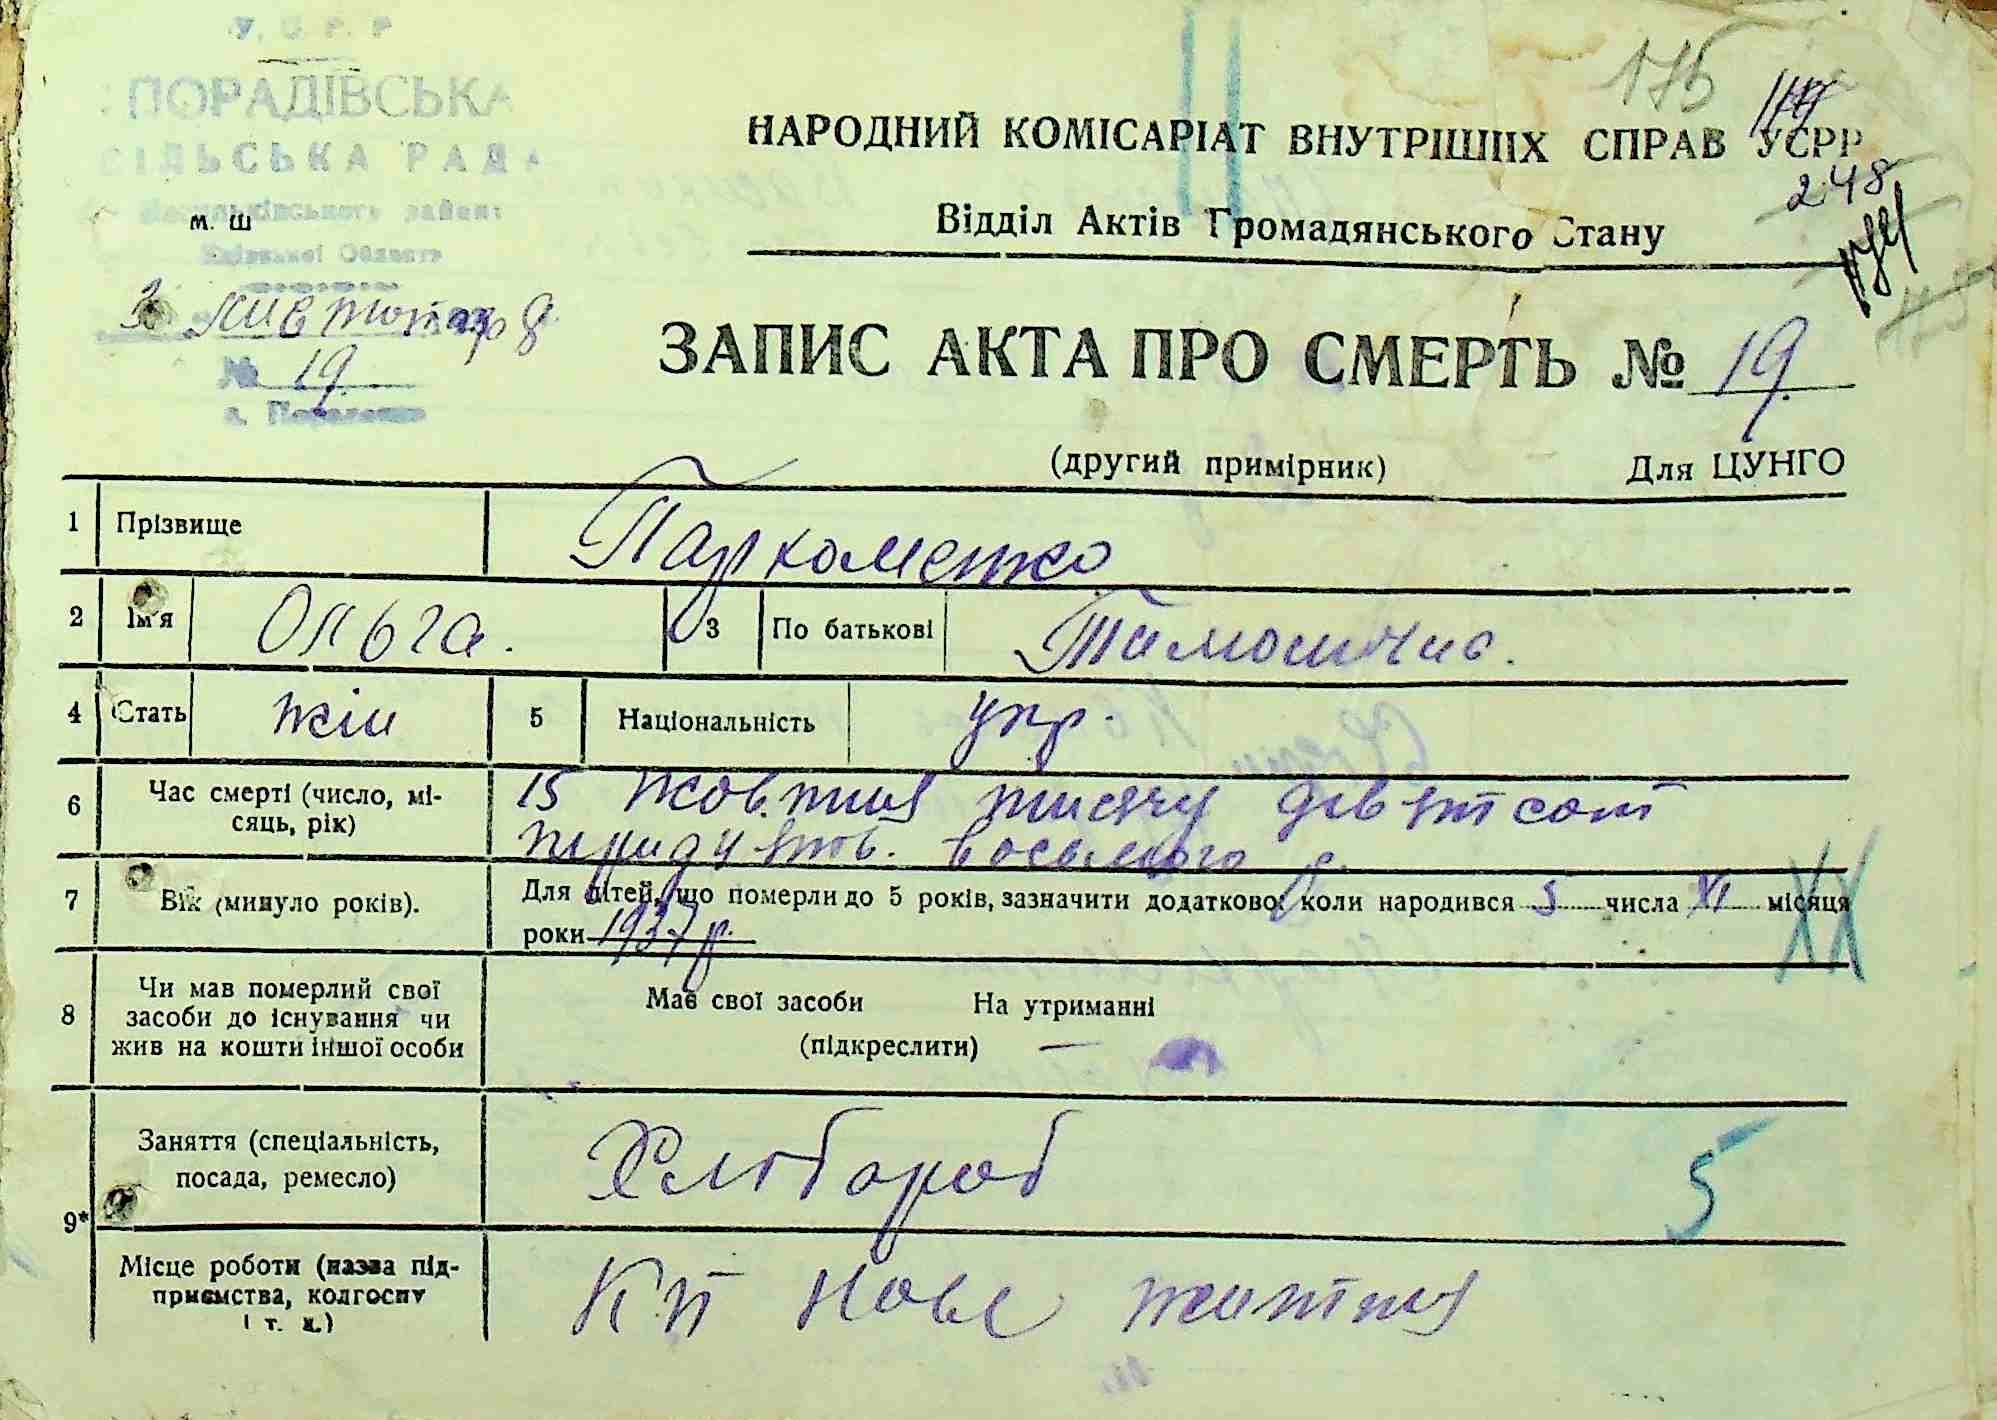 У. С. Р. Р
ПОРАДІВСЬКА
СІЛЬСЬКА РАДА
Васильківського району
Київської Области
м. ш
3 листопад
№ 19.
с. Порадовка
175
248
НАРОДНИЙ КОМІСАРІАТ ВНУТРІШНІХ СПРАВ УСРР
Відділ Актів Громадянського Стану
ЗАПИС АКТА ПРО СМЕРТЬ № 19.
(другий примірник) Для ЦУНГО
1 Прізвище Пархоменко
2 Ім'я Ольга. 3 По батькові
4 Стать жін 5 Національність укр.
6 Час смерті (число, мі-
сяць, рік)
15 жовтня тисячу девятсот
тридцять. восьмого р.
7 Вік (минуло років).
Для дітей, що померли до 5 років, зазначити додатково: коли народився 5 числа XI місяця
роки 1937 р.
8 Чи мав померлий свої
засоби до існування чи
жив на кошти іншої особи
Має свої засоби На утриманні
(підкреслити) —
9* Заняття (спеціальність,
посада, ремесло)
Хлібороб
5
Місце роботи (назва під-
приємства, колгоспу
і т. д.)
К.п Нове життя